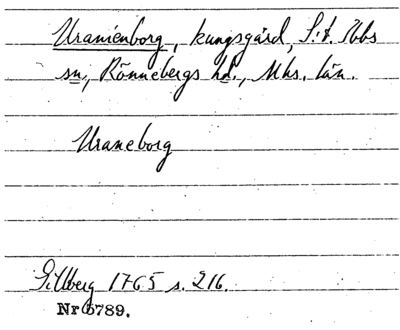 Uranienborg, kungsgård, S:t Ibbs
sn, Rönnebergs hd., Mhs. län.
Uraneborg
Gillberg 1765 s. 216.
Nr 6789.